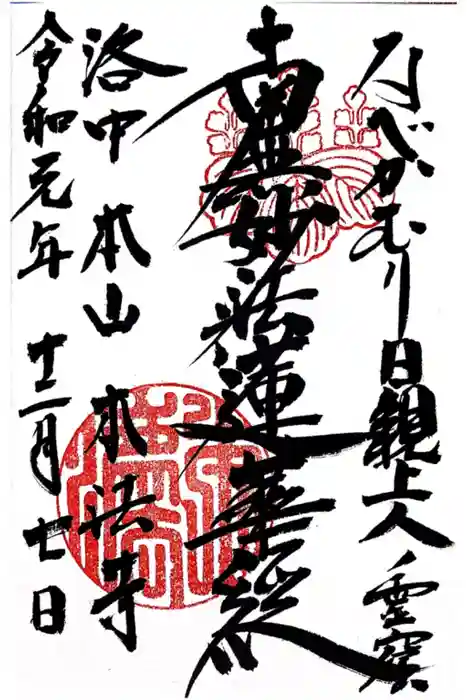 なべかむり日親上人ノ霊窟
南無妙法蓮華経
洛中 本山 本法寺
令和元年 十二月 七日